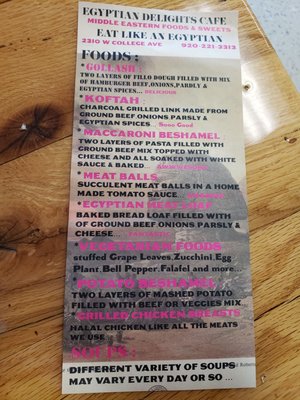 EGYPTIAN DELIGHTS CAFE
MIDDLE EASTERN FOODS & SWEETS
EAT LIKE AN EGYPTIAN
2310 W COLLEGE AVE 920-221-3313
FOODS :
*GOLLASH :
TWO LAYERS OF FILLO DOUGH FILLED WITH MIX
OF HAMBURGER BEEF,ONIONS,PARDLY &
EGYPTIAN SPICES... DELICIOUS
*KOFTAH :
CHARCOAL GRILLED LINK MADE FROM
GROUND BEEF ONIONS,PARSLY &
EGYPTIAN SPICES... Sooo Good
*MACCARONI BESHAMEL
TWO LAYERS OF PASTA FILLED WITH
GROUND BEEF MIX TOPPED WITH
CHEESE AND ALL SOAKED WITH WHITE
SAUCE & BAKED...
*MEAT BALLS
SUCCULENT MEAT BALLS IN A HOME
MADE TOMATO SAUCE...
*EGYPTIAN MEAT LOAF
BAKED BREAD LOAF FILLED WITH
OF GROUND BEEF ONIONS PARSLY &
CHEESE... FANTASTIC
*VEGETERIAN FOODS
stuffed Grape Leaves,Zucchini,Egg
Plant,Bell Pepper,Falafel and more...
*POTATO BESHAMEL
TWO LAYERS OF MASHED POTATO
FILLED WITH BEEF OR VEGGIES MIX...
*GRILLED CHICKEN BREASTS
HALAL CHICKEN LIKE ALL THE MEATS
WE USE
SOUPS :
DIFFERENT VARIETY OF SOUPS
MAY VARY EVERY DAY OR SO ...